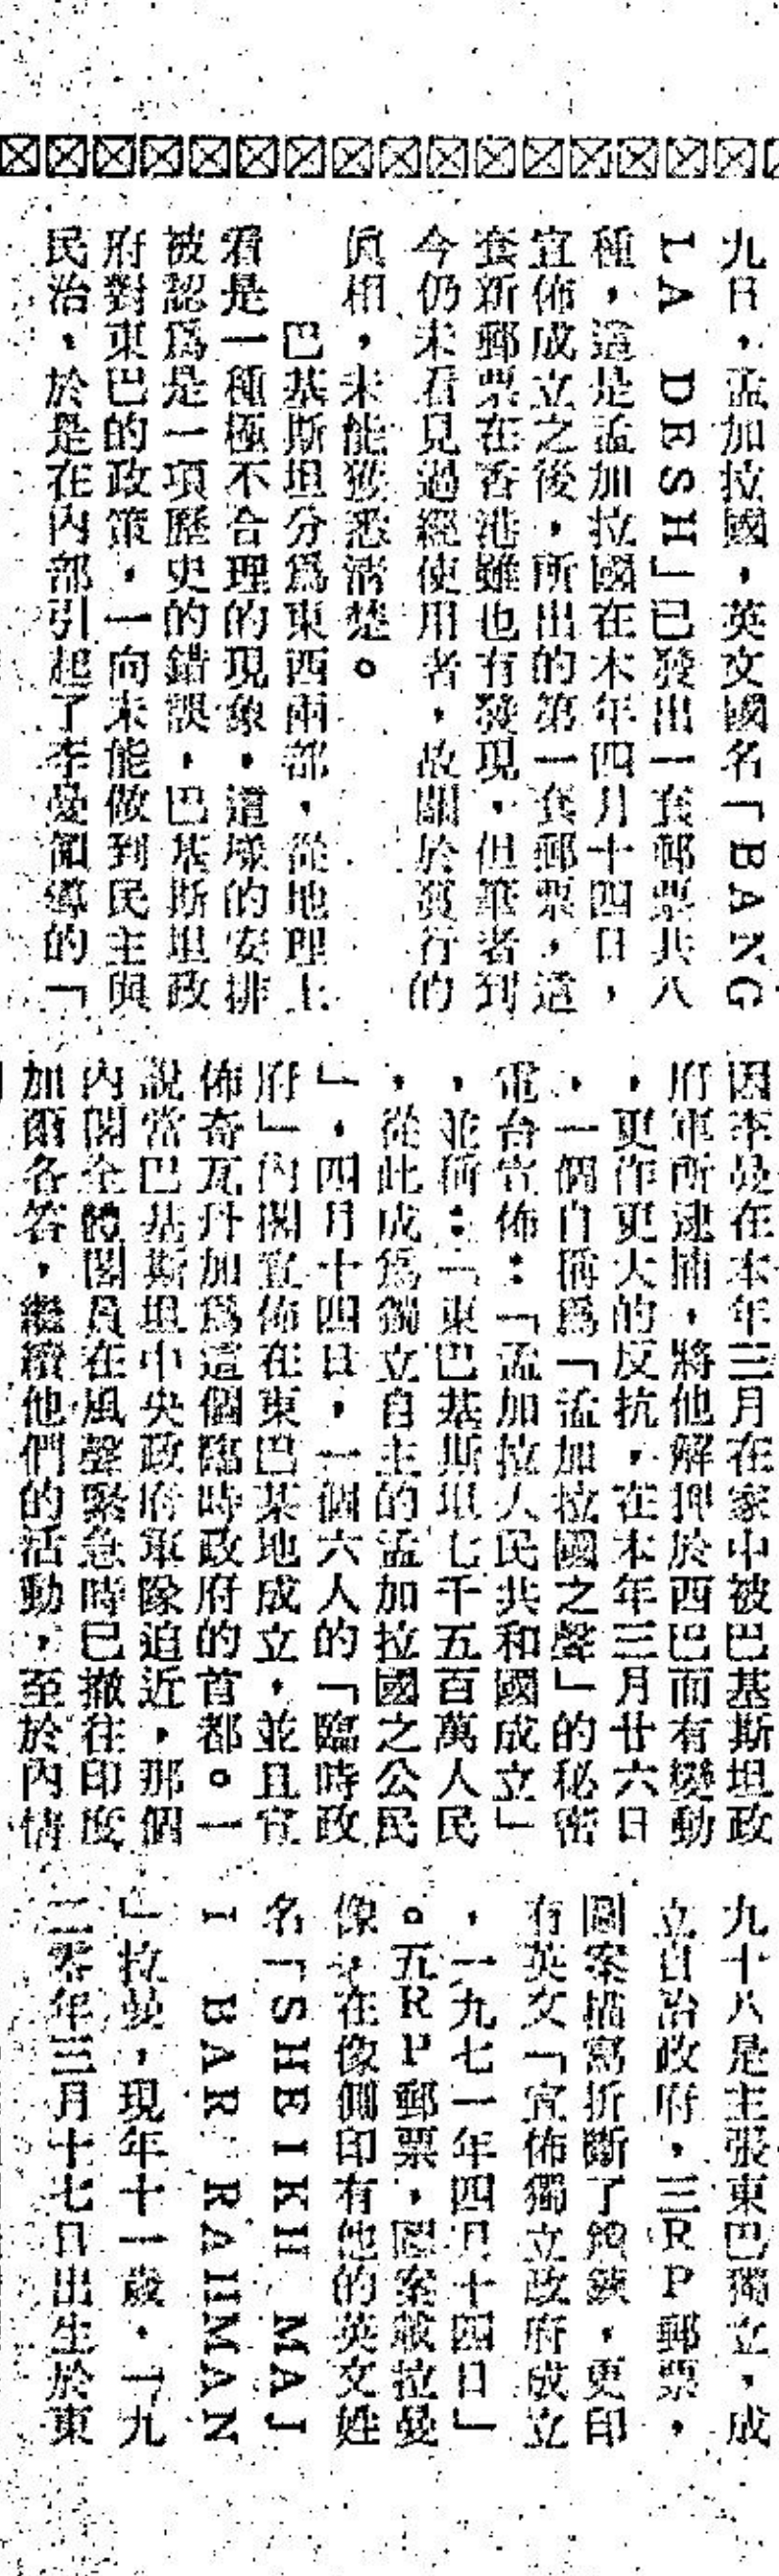 九日，孟加拉國，英文國名「BANG
LA DESH」已發出一套郵票共八
種，這是孟加拉國在本年四月十四日，
宣佈成立之後，所出的第一套郵票，這
套新郵票在香港雖也有發現，但筆者到
今仍未看見過經使用者，故關於發行的
眞相，未能獲悉清楚。
巴基斯坦分爲東西兩部，從地理上
看是一種極不合理的現象，這樣的安排
被認爲是一項歷史的錯誤，巴基斯坦政
府對東巴的政策，一向未能做到民主與
民治，於是在內部引起了李曼領導的「
因李曼在本年三月在家中被巴基斯坦政
府軍所逮捕，將他解押於西巴而有變動
，更作更大的反抗，在本年三月廿六日
，一個自稱爲「孟加拉國之聲」的秘密
電台宣佈：「孟加拉人民共和國成立」
，並稱：「東巴基斯坦七千五百萬人民
，從此成爲獨立自主的孟加拉國之公民
」，四月十四日，一個六人的「臨時政
府」內閣宣佈在東巴某地成立，並且宣
佈奇瓦丹加爲這個臨時政府的首都。一
說當巴基斯坦中央政府軍隊迫近，那個
內閣全體閣員在風聲緊急時已撤往印度
加爾各答，繼續他們的活動，至於內情
九十八是主張東巴獨立，成
立自治政府，三RP郵票，
圖案描寫折斷了鎖鍊，更印
有英文「宣佈獨立政府成立
，一九七一年四月十四日」
。五RP郵票，圖案載拉曼
像，在像側印有他的英文姓
名「SHEIKH MAJ
I BAR RAHMAN
」拉曼，現年十一歲，一九
二零年三月十七日出生於東